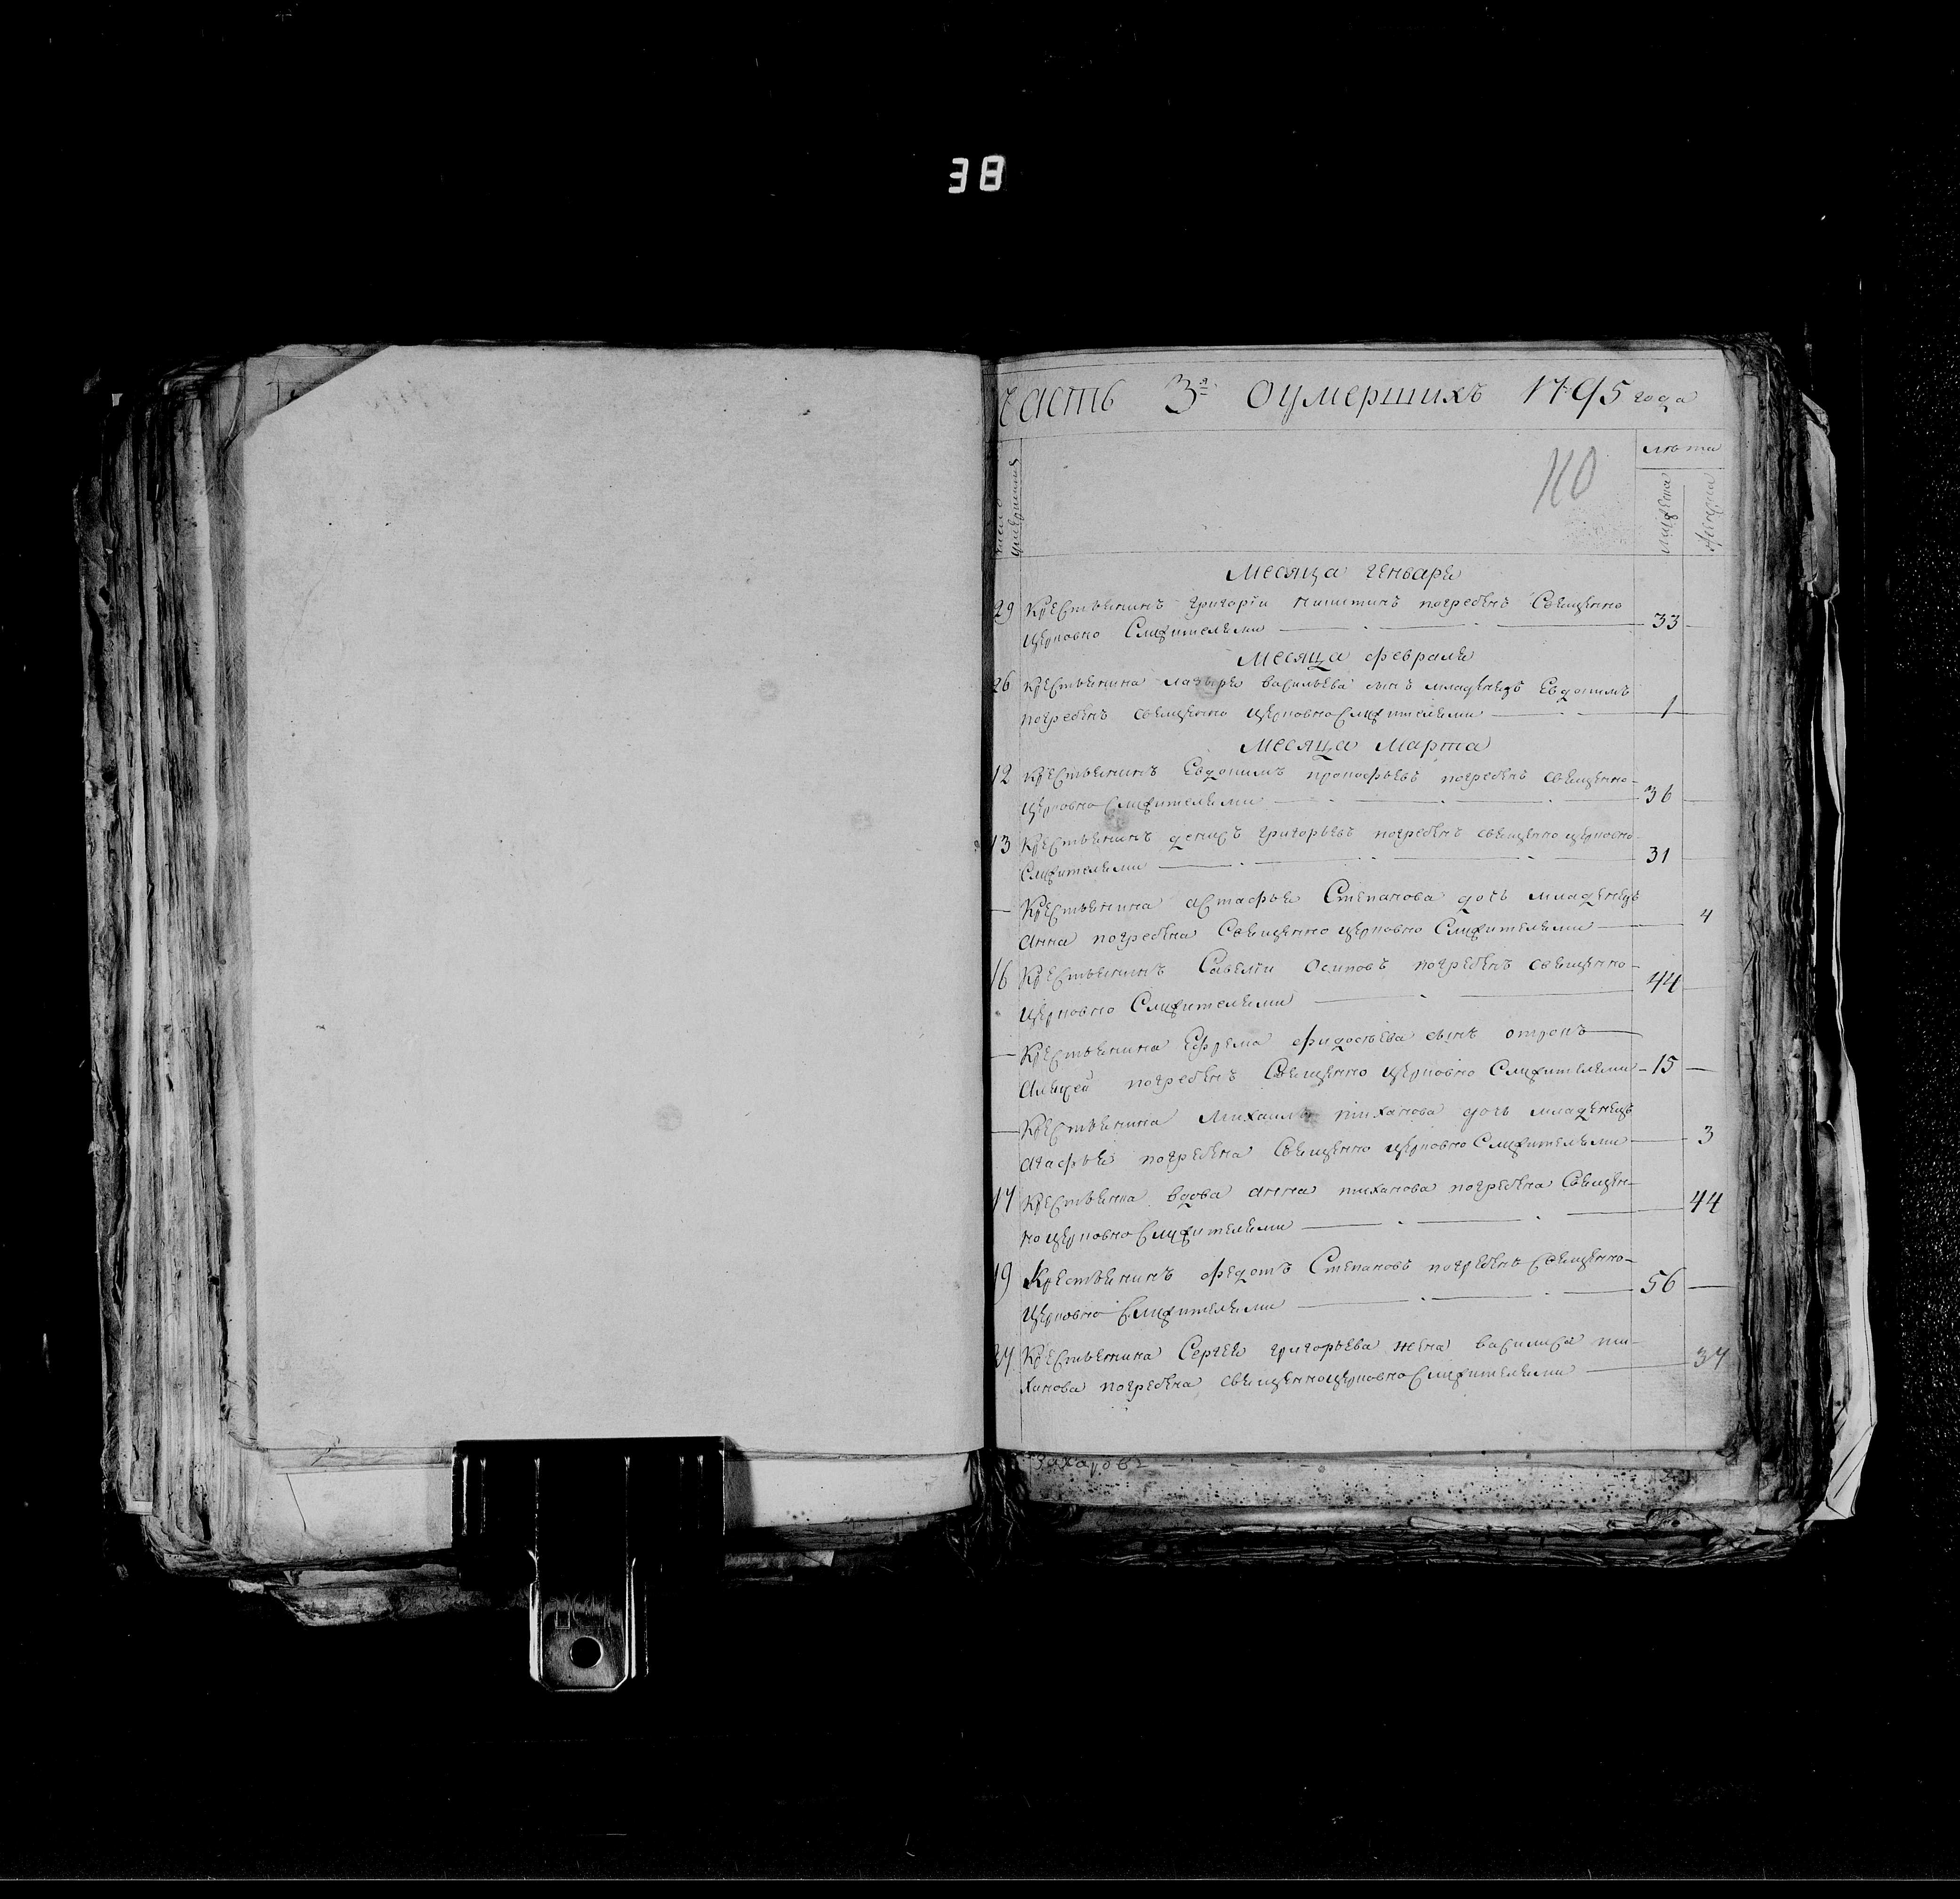 38
Часть 3я оумершихъ 1795 года
110
лѣта
число умершихъ
мужеска
женска
Месяца генваря
29 Крестьянинъ григории никитинъ погребенъ Священно
церковно Служителями 33
Месяца февраля
26 Крестьянина лазаря васильева сынъ младенецъ Евдокимъ
погребенъ священно церковно Служителями 1
Месяца Марта
12 Крестьянинъ Евдокимъ прокофьевъ погребенъ священно-
церковно Служителями 36
13 Крестьянинъ денисъ григорьевъ погребенъ священно церковно-
Служителями 31
— Крестьянина астафья Степанова дочь младенецъ
анна погребена Священно церковно Служителями 4
16 Крестьянинъ Савелии Осиповъ погребенъ священно-
церковно Служителями 44
— Крестьянина Ефрема фидосѣева сынъ отрокъ
Алексей погребенъ Священно церковно Служителями 15
— Крестьянина Михаила тиханова дочь младенецъ
агафья погребена Священно церковно Служителями 3
17 Крестьянка вдова анна тиханова погребена Священ-
но церковно Служителями 44
19 Крестьянинъ федотъ Степановъ погребенъ Священно-
церковно Служителями 56
27 Крестьянина Сергея григорьева жена василиса ти-
ханова погребена священноцерковно Служителями 37
Захаровъ